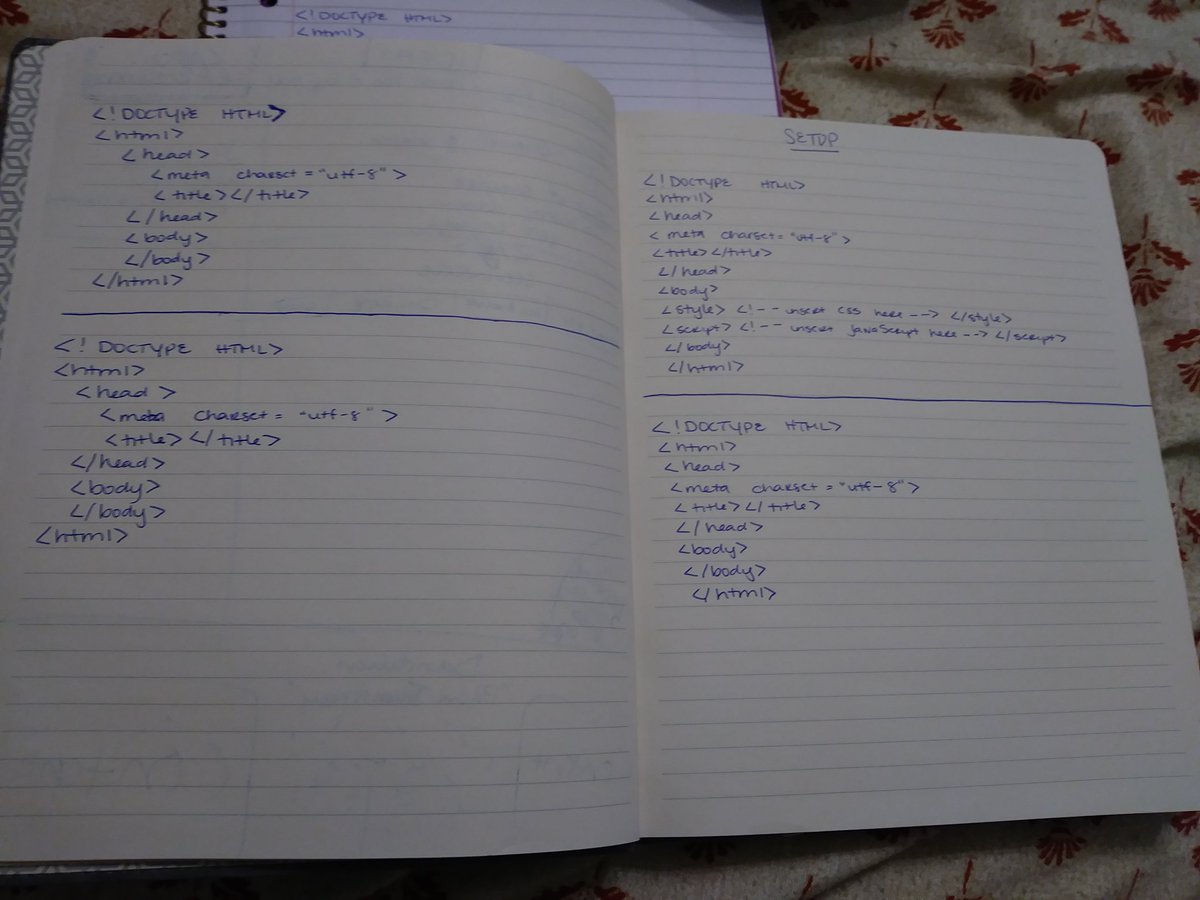 <!DOCTYPE HTML>
<html>
<!DOCTYPE HTML>
<html>
<head>
<meta charset="utf-8">
<title></title>
</head>
<body>
</body>
</html>
<!DOCTYPE HTML>
<html>
<head>
<meta charset="utf-8">
<title></title>
</head>
<body>
</body>
<html>
SETUP
<!DOCTYPE HTML>
<html>
<head>
<meta charset="utf-8">
<title></title>
</head>
<body>
<style> <!-- insert css here --> </style>
<script> <!-- insert javaScript here --> </script>
</body>
</html>
<!DOCTYPE HTML>
<html>
<head>
<meta charset="utf-8">
<title></title>
</head>
<body>
</body>
</html>